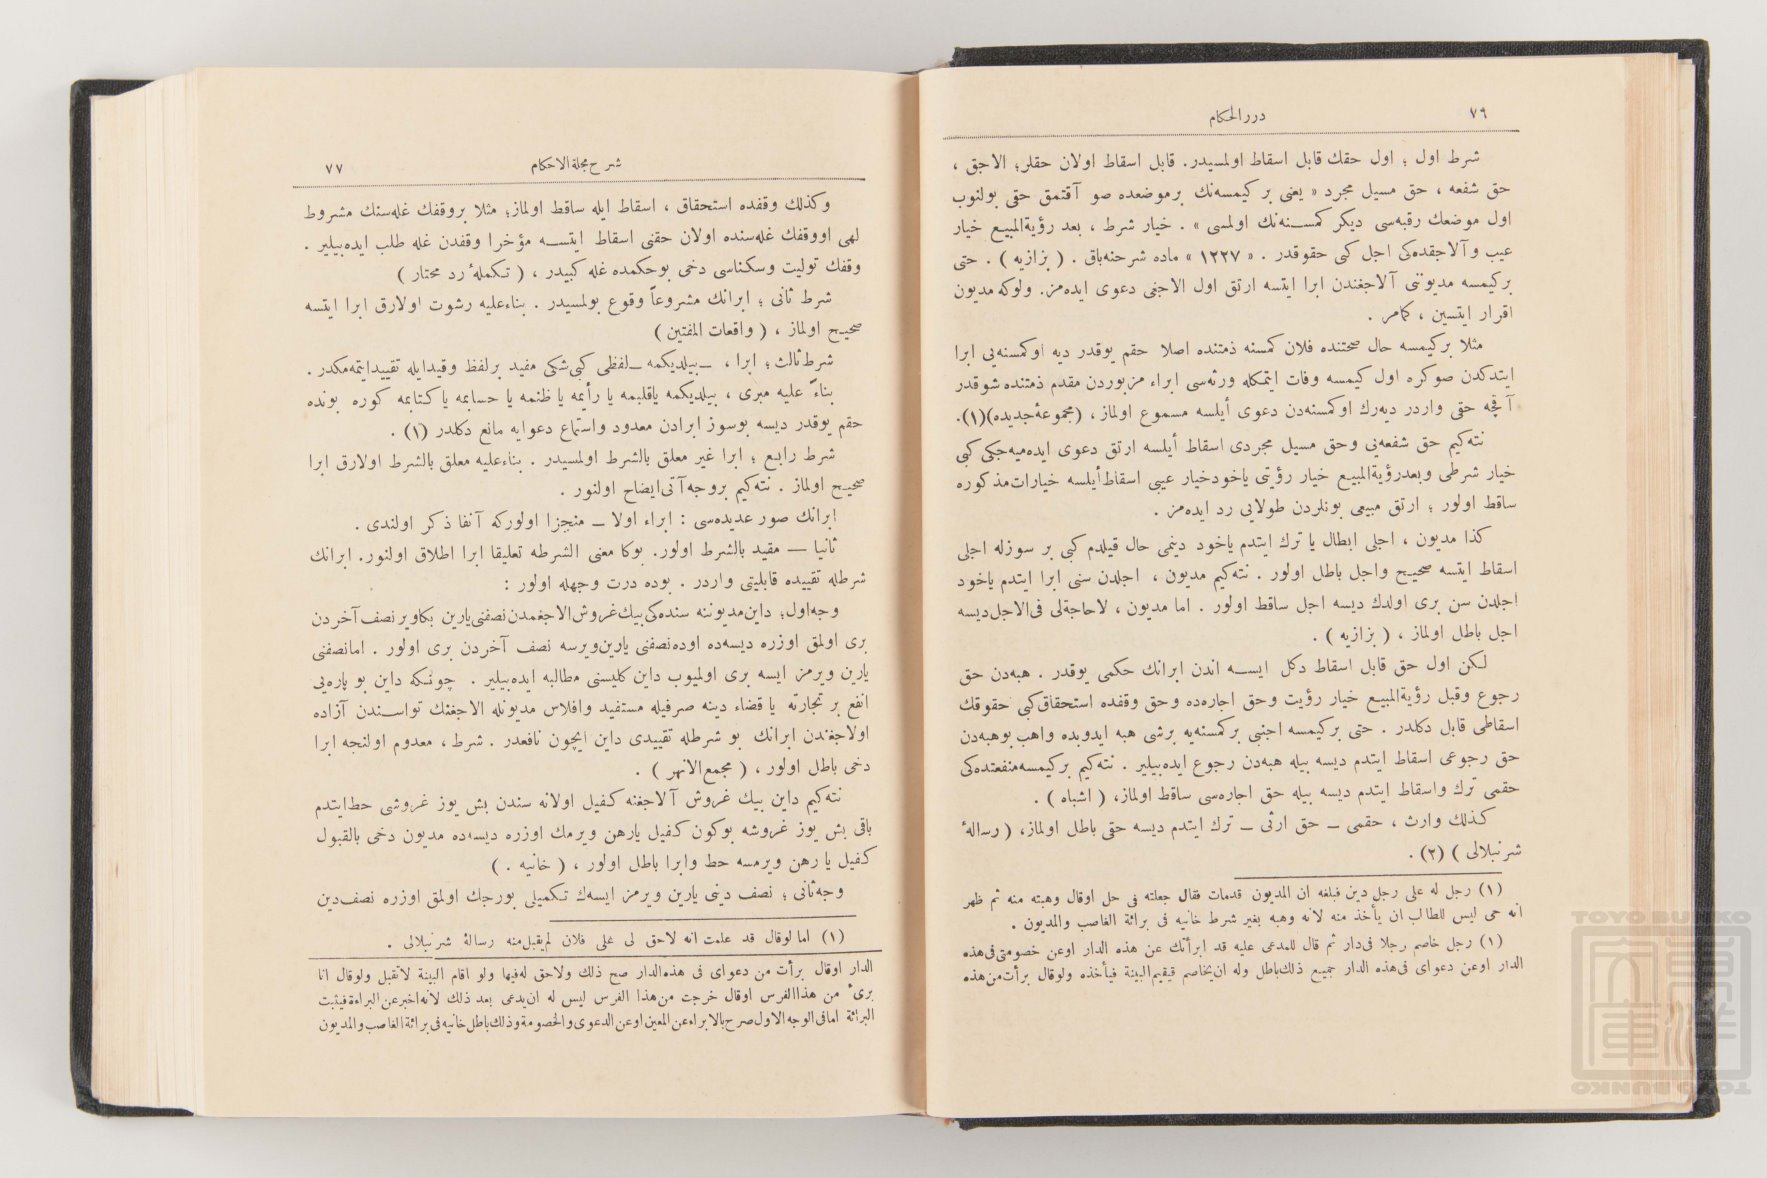 ٧٦
درر الحكام
شرط اول ؛ اول حقك قابل اسقاط اولمسيدر. قابل اسقاط اولان حقلر؛ الاجق ،
حق شفعه ، حق مسيل مجرد « يعنى بر كيمسه‌نك برموضعده صو آقتمق حقى بولنوب
اول موضعك رقبه‌سى ديكر كمسنه‌نك اولمسى » . خيار شرط ، بعد رؤية‌المبيع خيار
عيب و آلاجقده‌كى اجل كبى حقوقدر . « ١٢٢٧ » ماده شرحنه‌باق . ( بزازيه ) . حتى
بركيمسه مديونى آلاجغندن ابرا ايتسه ارتق اول الاجغى دعوى ايده‌مز. ولوكه مديون
اقرار ايتسين ، كمامر .
مثلا بركيمسه حال صحتنده فلان كمسنه ذمتنده اصلا حقم يوقدر ديه اوكمسنه‌يى ابرا
ايتدكدن صوكره اول كيمسه وفات ايتمكله ورثه‌سى ابراء مزبوردن مقدم ذمتنده شوقدر
آقچه حقى واردر ديه‌رك اوكمسنه‌دن دعوى أيلسه مسموع اولماز ، (مجموعۀجديده)(١).
نته‌كيم حق شفعه‌يى وحق مسيل مجردى اسقاط أيلسه ارتق دعوى ايده‌ميه‌جكى كبى
خيار شرطى وبعدرؤية‌المبيع خيار رؤيتى ياخودخيار عيبى اسقاط‌أيلسه خيارات‌مذكوره
ساقط اولور ؛ ارتق مبيعى بونلردن طولايى رد ايده‌مز .
كذا مديون ، اجلى ابطال يا ترك ايتدم ياخود دينمى حال قيلدم كبى بر سوزله اجلى
اسقاط ايتسه صحيح واجل باطل اولور . نته‌كيم مديون ، اجلدن سنى ابرا ايتدم ياخود
اجلدن سن برى اولدك ديسه اجل ساقط اولور . اما مديون ، لاحاجة‌لى فى‌الاجل‌ديسه
اجل باطل اولماز ، ( بزازيه ) .
لكن اول حق قابل اسقاط دكل ايسه اندن ابرانك حكمى يوقدر . هبه‌دن حق
رجوع وقبل رؤية‌المبيع خيار رؤيت وحق اجاره‌ده وحق وقفده استحقاق‌كبى حقوقك
اسقاطى قابل دكلدر . حتى بركيمسه اجنبى بركمسنه‌يه برشى هبه ايدوبده واهب بوهبه‌دن
حق رجوعى اسقاط ايتدم ديسه بيله هبه‌دن رجوع ايده‌بيلير . نته‌كيم بركيمسه‌منفعتده‌كى
حقمى ترك واسقاط ايتدم ديسه بيله حق اجاره‌سى ساقط اولماز، ( اشباه ) .
كذلك وارث ، حقمى ـ حق ارثى ـ ترك ايتدم ديسه حقى باطل اولماز، ( رسالۀ
شرنبلالى ) (٢) .
(١) رجل له على رجل دين فبلغه ان المديون قدمات فقال جعلته فى حل اوقال وهبته منه ثم ظهر
انه حى ليس للطالب ان يأخذ منه لانه وهبه بغير شرط خانيه فى برائة الغاصب والمديون .
(١) رجل خاصم رجلا فى‌دار ثم قال للمدعى عليه قد ابرأتك عن هذه الدار اوعن خصومتى‌فى‌هذه
الدار اوعن دعواى فى‌هذه الدار جميع ذلك‌باطل وله ان‌يخاصم فيقيم‌البينة فيأخذه ولوقال برأت‌من‌هذه
شرح مجلة الاحكام
٧٧
وكذلك وقفده استحقاق ، اسقاط ايله ساقط اولماز؛ مثلا بروقفك غله‌سنك مشروط
لهى اووقفك غله‌سنده اولان حقنى اسقاط ايتسه مؤخرا وقفدن غله طلب ايده‌بيلير .
وقفك توليت وسكناسى دخى بوحكمده غله كبيدر ، ( تكملۀ رد محتار )
شرط ثانى ؛ ابرانك مشروعاً وقوع بولمسيدر . بناءعليه رشوت اولارق ابرا ايتسه
صحيح اولماز ، ( واقعات المفتين )
شرط ثالث ؛ ابرا ، ـ بيلديكمه ـ لفظى كبى‌شكى مفيد برلفظ وقيدايله تقييدايتمه‌مكدر .
بناءً عليه مبرى ، بيلديكمه ياقلبمه يا رأيمه يا ظنمه يا حسابمه يا كتابمه كوره بونده
حقم يوقدر ديسه بوسوز ابرادن معدود واستماع دعوايه مانع دكلدر (١) .
شرط رابع ؛ ابرا غير معلق بالشرط اولمسيدر . بناءعليه معلق بالشرط اولارق ابرا
صحيح اولماز . نته‌كيم بروجه‌آتى‌ايضاح اولنور .
ابرانك صور عديده‌سى : ابراء اولا ـ منجزا اولوركه آنفا ذكر اولندى .
ثانيا ـ مقيد بالشرط اولور. بوكا معنى الشرطه تعليقا ابرا اطلاق اولنور. ابرانك
شرطله تقييده قابليتى واردر . بوده درت وجهله اولور :
وجه‌اول؛ داين‌مديوننه سنده‌كى‌بيك‌غروش‌الاجغمدن‌نصفنى‌يارين بكاوير نصف‌آخردن
برى اولمق اوزره ديسه‌ده اوده‌نصفنى يارين‌ويرسه نصف آخردن برى اولور . امانصفنى
يارين ويرمز ايسه برى اولميوب داين كليسنى مطالبه ايده‌بيلير . چونكه داين بو پاره‌يى
انفع بر تجارته يا قضاء دينه صرفيله مستفيد وافلاس مديونله الاجغنك تواسندن آزاده
اولاجغندن ابرانك بو شرطله تقييدى داين ايچون نافعدر . شرط ، معدوم اولنجه ابرا
دخى باطل اولور ، ( مجمع‌الانهر ) .
نته‌كيم داين بيك غروش آلاجغنه كفيل اولانه سندن بش يوز غروشى حط‌ايتدم
باقى بش يوز غروشه بوكون كفيل يارهن ويرمك اوزره ديسه‌ده مديون دخى بالقبول
كفيل يا رهن ويرمسه حط وابرا باطل اولور ، ( خانيه . )
وجه‌ثانى ؛ نصف دينى يارين ويرمز ايسه‌ك تكميلى بورجك اولمق اوزره نصف‌دين
(١) اما لوقال قد علمت انه لاحق لى على فلان لم‌يقبل‌منه رسالۀ شرنبلالى .
الدار اوقال برأت من دعواى فى هذه‌الدار صح ذلك ولاحق له‌فيها ولو اقام البينة لاتقبل ولوقال انا
برىء من هذاالفرس اوقال خرجت من‌هذا الفرس ليس له ان‌يدعى بعد ذلك لانه‌اخبرعن‌البراءة‌فيثبت
البرائة امافى‌الوجه‌الاول‌صرح‌بالابراءعن‌المعين‌اوعن‌الدعوى‌والخصومة‌وذلك‌باطل‌خانيه‌فى‌برائة‌الغاصب‌والمديون
TOYO BUNKO